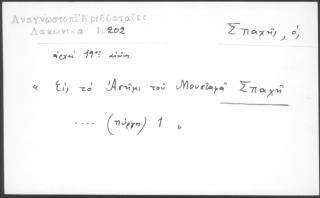 Ἀναγνωστοπ/Κρεββαταῖες
Λακωνικά 1.202
Σπαχῆς, ὁ,
ἀρχές 19ου αἰών.
« Εἰς τό Ἀσῆμι τοῦ Μουσταφᾶ Σπαχῆ
.... (πύργοι) 1 »